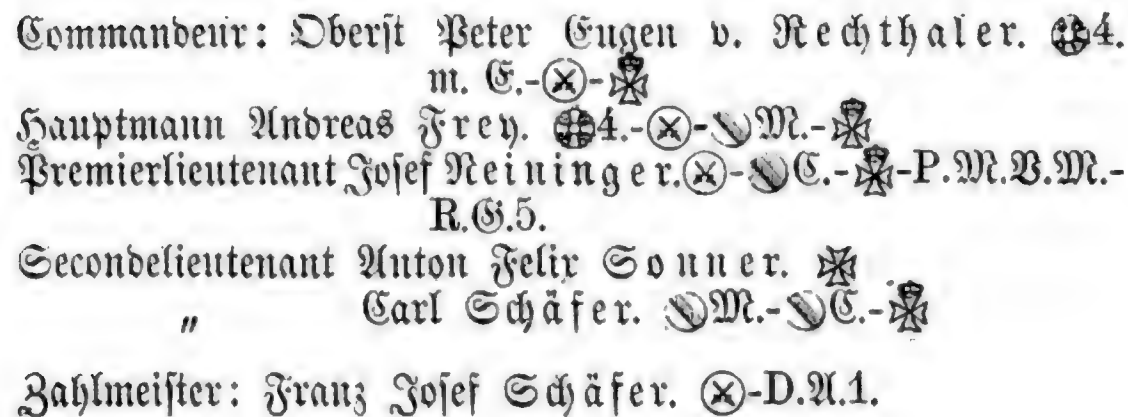 Commandeur: Oberst Peter Eugen v. Rechthaler. 4.
m. E.-⚔-
Hauptmann Andreas Frey. 4.-⚔-M.-
Premierlieutenant Josef Reininger.⚔-C.-P.M.V.M.-
R.G.5.
Secondelieutenant Anton Felix Sonner.
" Carl Schäfer. M.-C.-
Zahlmeister: Franz Josef Schäfer. ⚔-D.A.1.